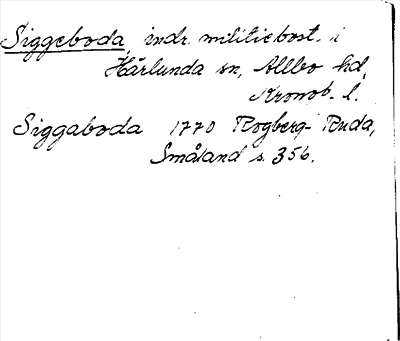 Siggeboda, indr. militiebost. i
Härlunda sn, Allbo hd,
Kronob. l.
Siggaboda 1770 Rogberg-Ruda,
Småland s. 356.